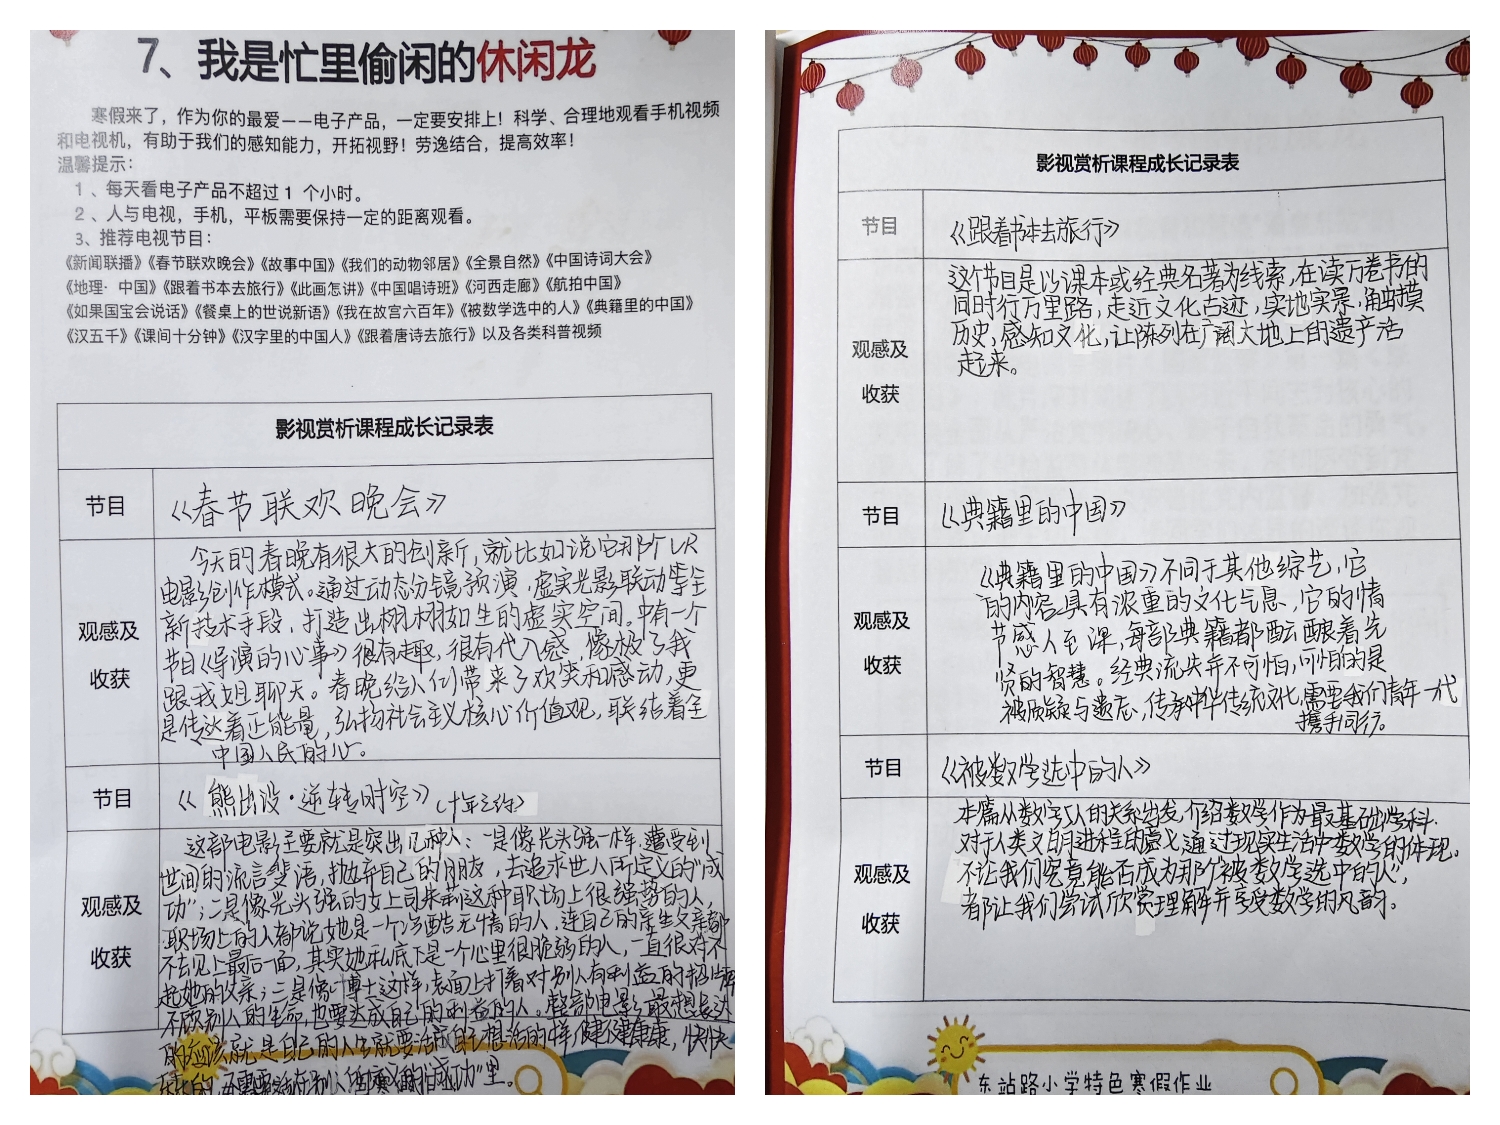 7、我是忙里偷闲的休闲龙
寒假来了，作为你的最爱——电子产品，一定要安排上！科学、合理地观看手机视频
和电视机，有助于我们的感知能力，开拓视野！劳逸结合，提高效率！
温馨提示：
1、每天看电子产品不超过 1 个小时。
2、人与电视，手机，平板需要保持一定的距离观看。
3、推荐电视节目：
《新闻联播》《春节联欢晚会》《故事中国》《我们的动物邻居》《全景自然》《中国诗词大会》
《地理·中国》《跟着书本去旅行》《此画怎讲》《中国唱诗班》《河西走廊》《航拍中国》
《如果国宝会说话》《餐桌上的世说新语》《我在故宫六百年》《被数学选中的人》《典籍里的中国》
《汉五千》《课间十分钟》《汉字里的中国人》《跟着唐诗去旅行》以及各类科普视频
影视赏析课程成长记录表
节目
《春节联欢晚会》
观感及
收获
今天的春晚有很大的创新，就比如说它那个VR
电影创作模式。通过动态分镜预演，虚实光影联动等全
新技术手段，打造出栩栩如生的虚实空间。中有一个
节目《导演的心事》很有趣，很有代入感，像极了我
跟我姐聊天。春晚给人们带来了欢笑和感动，更
是传达着正能量，弘扬社会主义核心价值观，联结着全
中国人民的心。
节目
《熊出没·逆转时空》（十年之约）
观感及
收获
这部电影主要就是突出几种人：一是像光头强一样，遭受到
世间的流言蜚语，抛弃自己的朋友，去追求世人所定义的“成
功”；二是像光头强的女上司朱莉这种职场上很强势的人，
职场上的人都说她是一个冷酷无情的人，连自己的亲生父亲都
不去见上最后一面，其实她私底下是一个心里很脆弱的人，一直很对不
起她的父亲；三是像博士这样，表面上打着对别人有利益的招牌
不顾别人的生命，也要达成自己的利益的人。整部电影最想表达
的应该就是自己的人生就要活成自己想活的样，健健康康，快快
乐乐的，不需要活在别人定义的“成功”里。
影视赏析课程成长记录表
节目
《跟着书本去旅行》
观感及
收获
这个节目是以课本或经典名著为线索，在读万卷书的
同时行万里路，走近文化古迹，实地实景，触摸
历史，感知文化，让陈列在广阔大地上的遗产活
起来。
节目
《典籍里的中国》
观感及
收获
《典籍里的中国》不同于其他综艺，它
的内容具有浓重的文化气息，它的情
节感人至深，每部典籍都酝酿着先
贤的智慧。经典流失并不可怕，可怕的是
被质疑与遗忘，传承中华传统文化，需要我们青年一代
携手同行。
节目
《被数学选中的人》
观感及
收获
本篇从数学与人的关系出发，介绍数学作为最基础学科，
对于人类文明进程的意义，通过现实生活中数学的体现，
不论我们究竟能否成为那个“被数学选中的人”，
都让我们尝试欣赏理解并享受数学的风韵。
东站路小学特色寒假作业